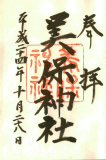 奉拝
美保神社
平成二十四年十月二十八日